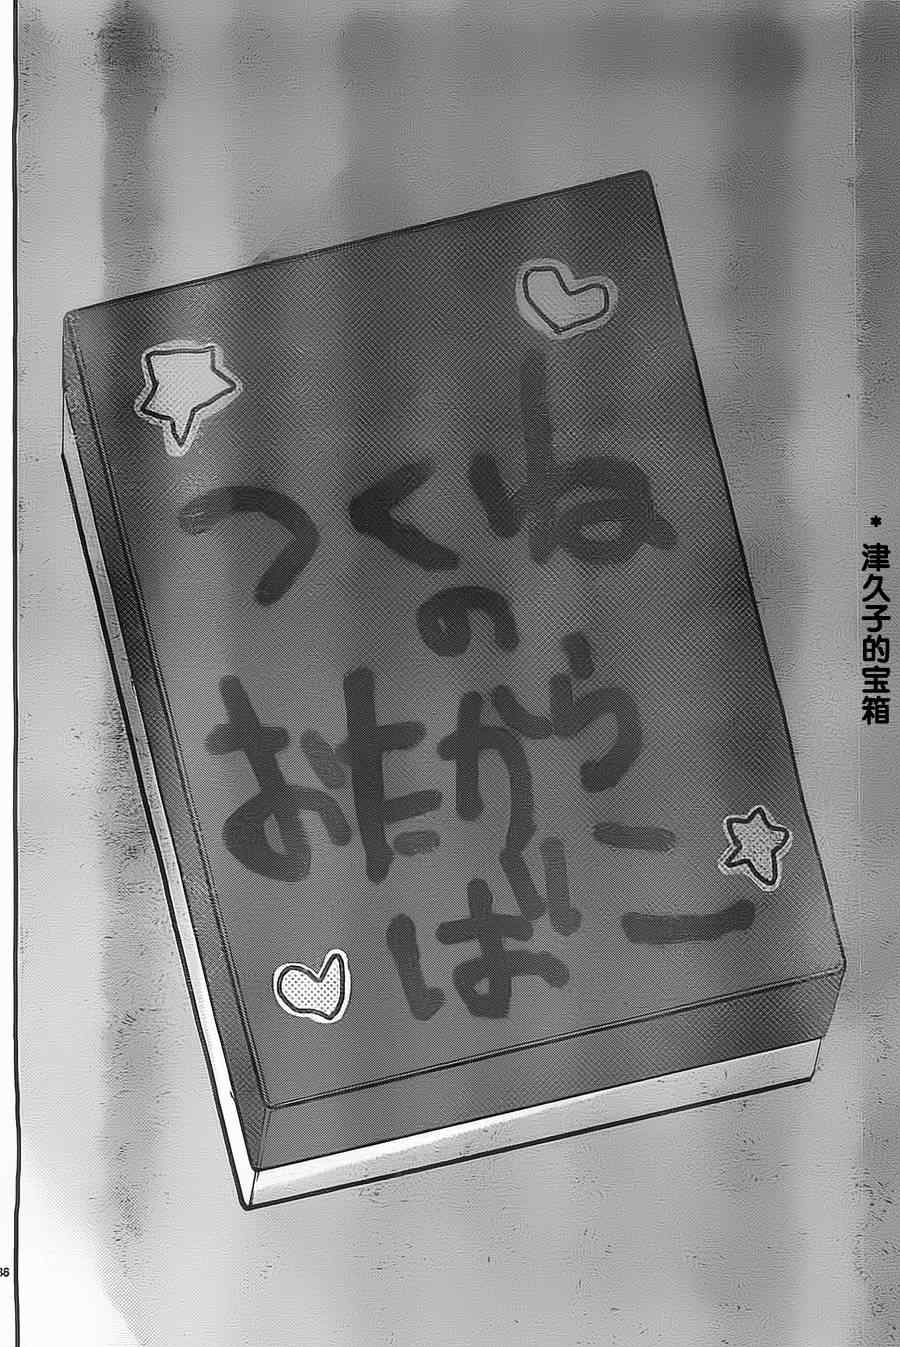 つくね
の
おたから
ばこ
* 津久子的宝箱